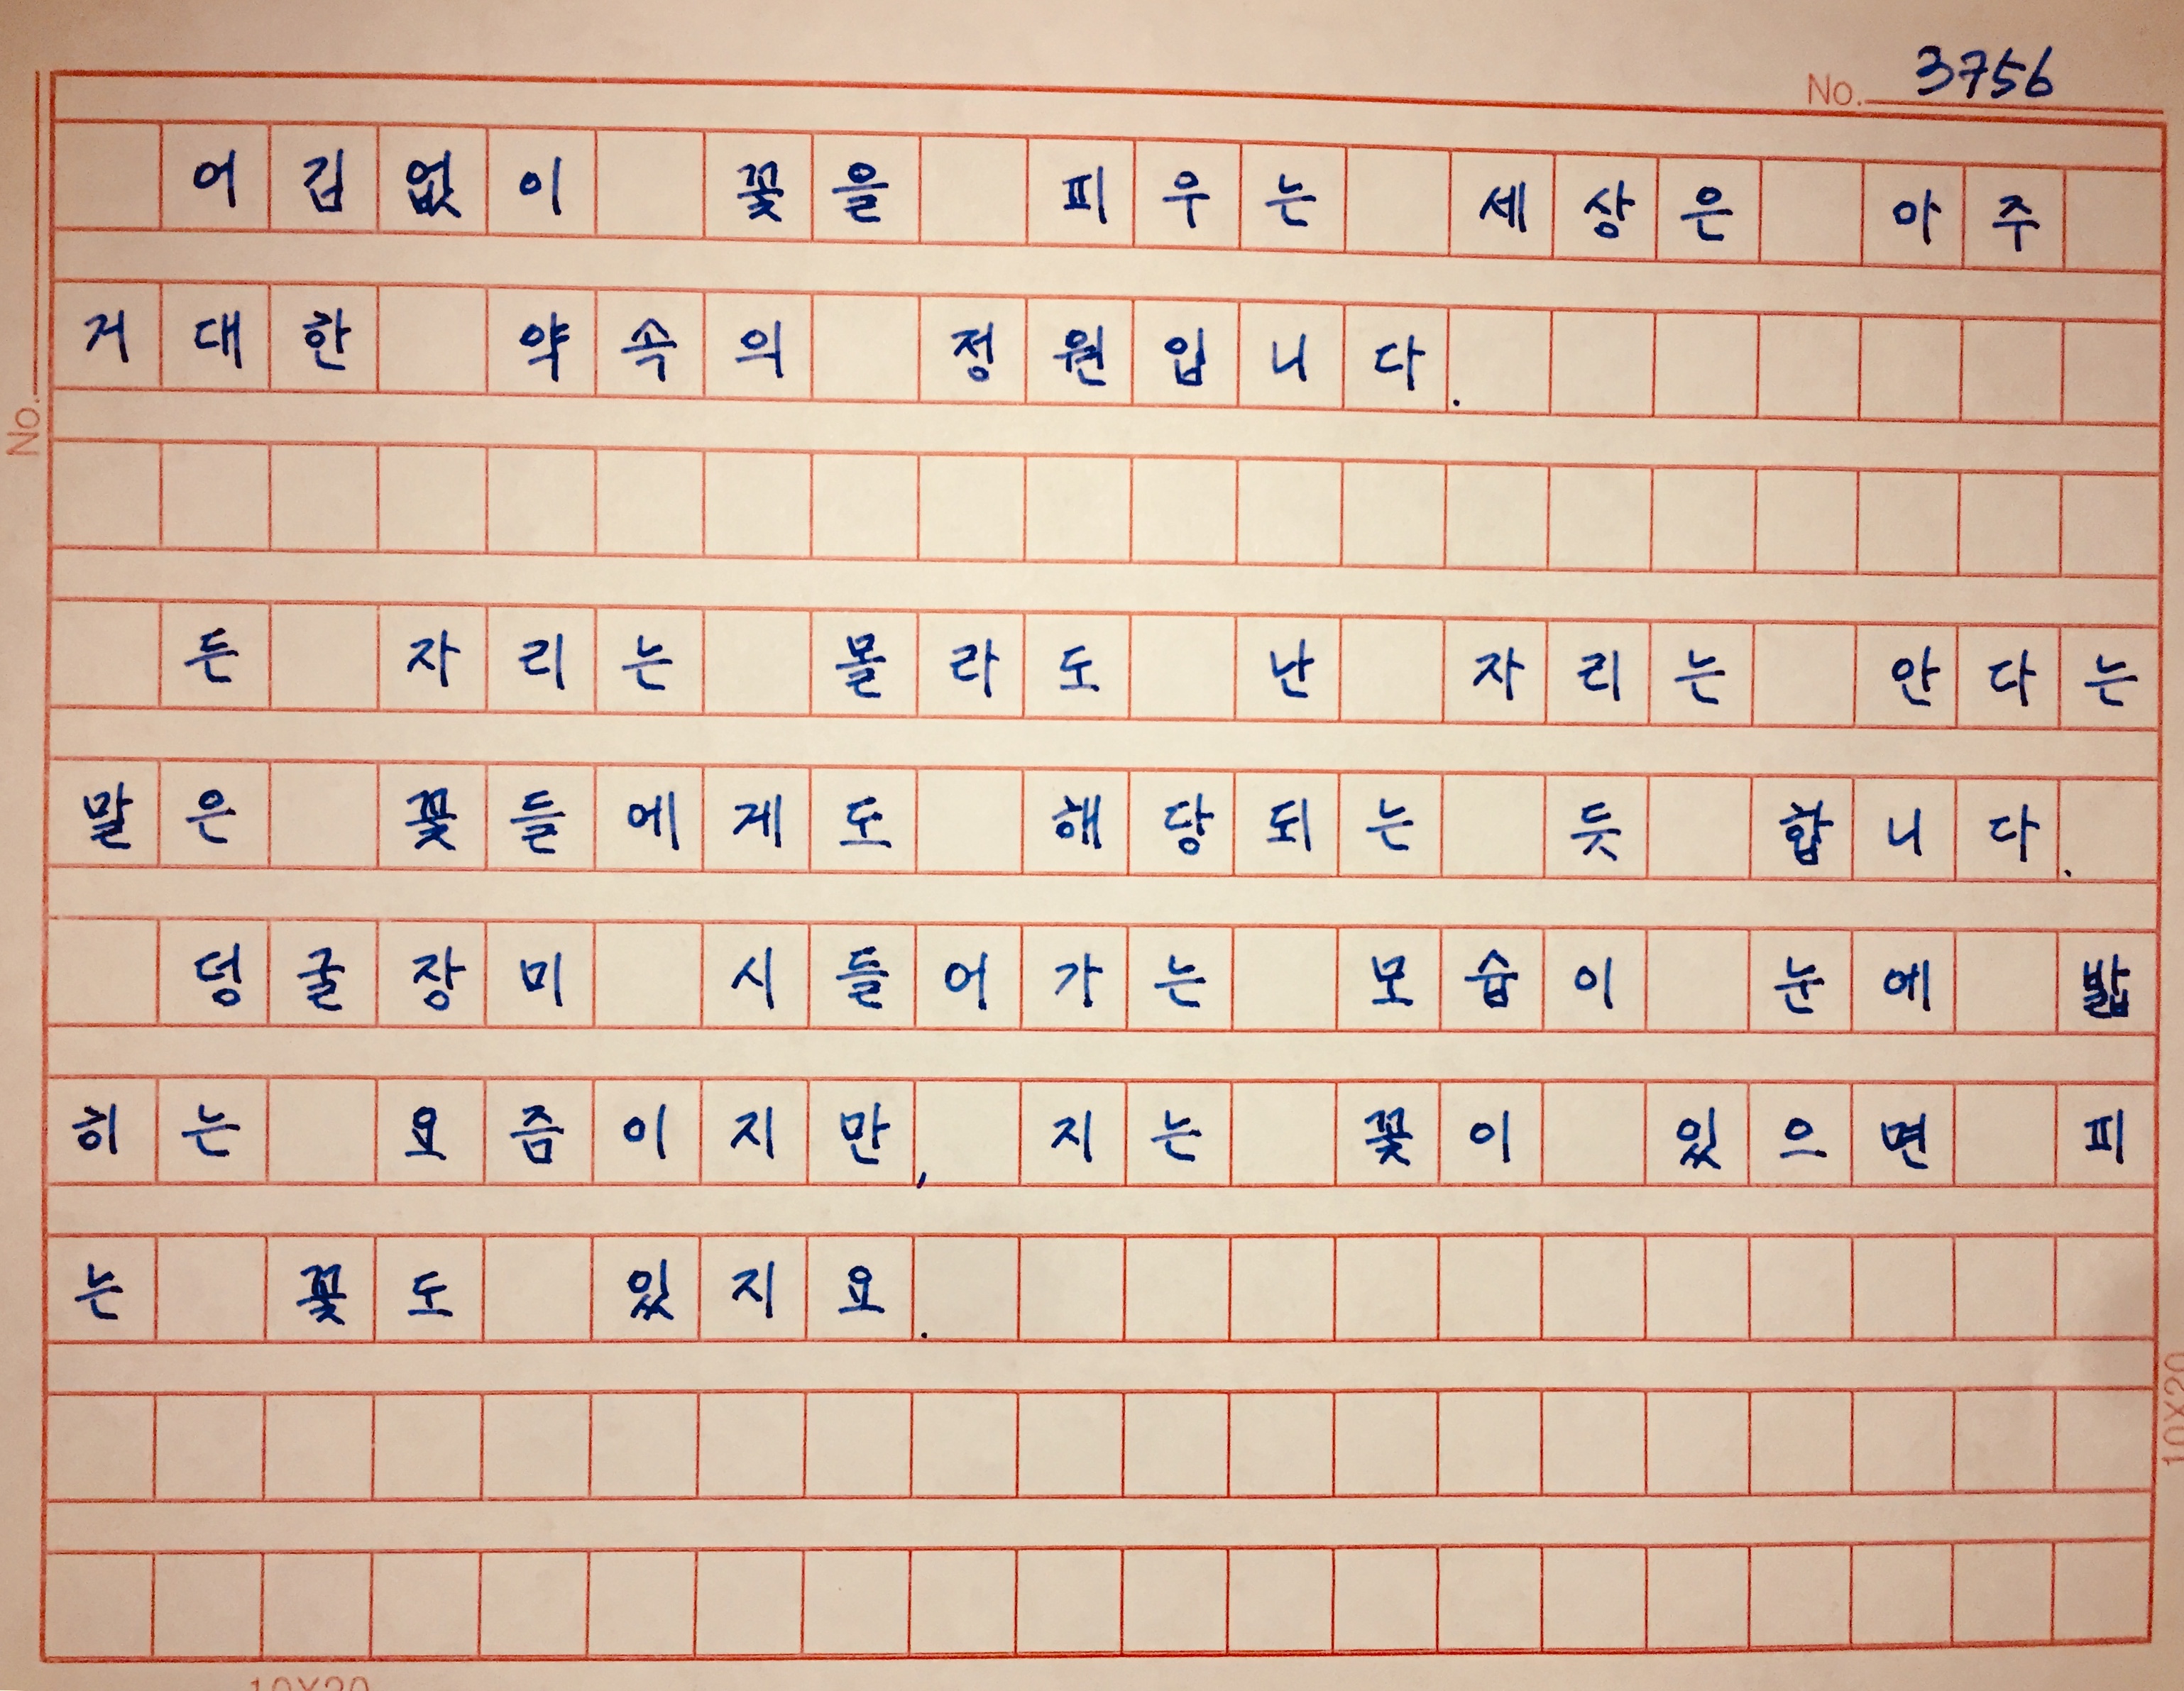 No. 3756
어김없이 꽃을 피우는 세상은 아주
거대한 약속의 정원입니다.
No.
든 자리는 몰라도 난 자리는 안다는
말은 꽃들에게도 해당되는 듯 합니다.
덩굴장미 시들어가는 모습이 눈에 밟
히는 요즘이지만, 지는 꽃이 있으면 피
는 꽃도 있지요.
10X20
10X20